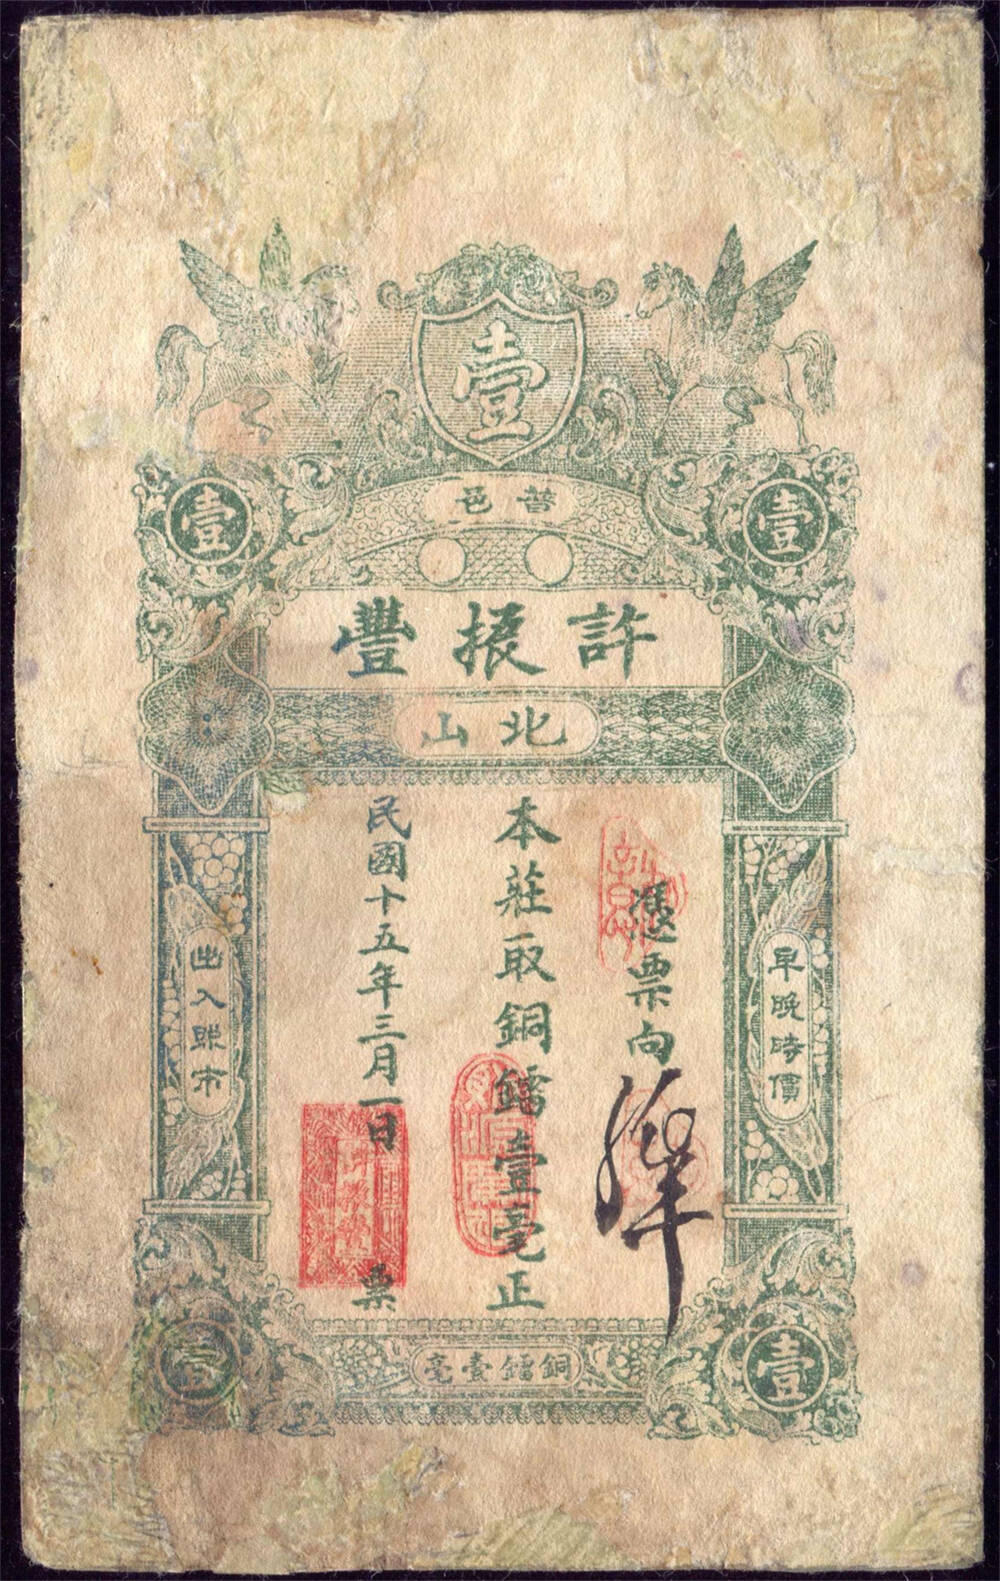 壹
壹
壹
普邑
許振豐
北山
早晚時價
憑票向
本莊取銅鐳壹毫正
民國十五年三月一日
票
出入照市
銅鐳壹毫
壹
壹